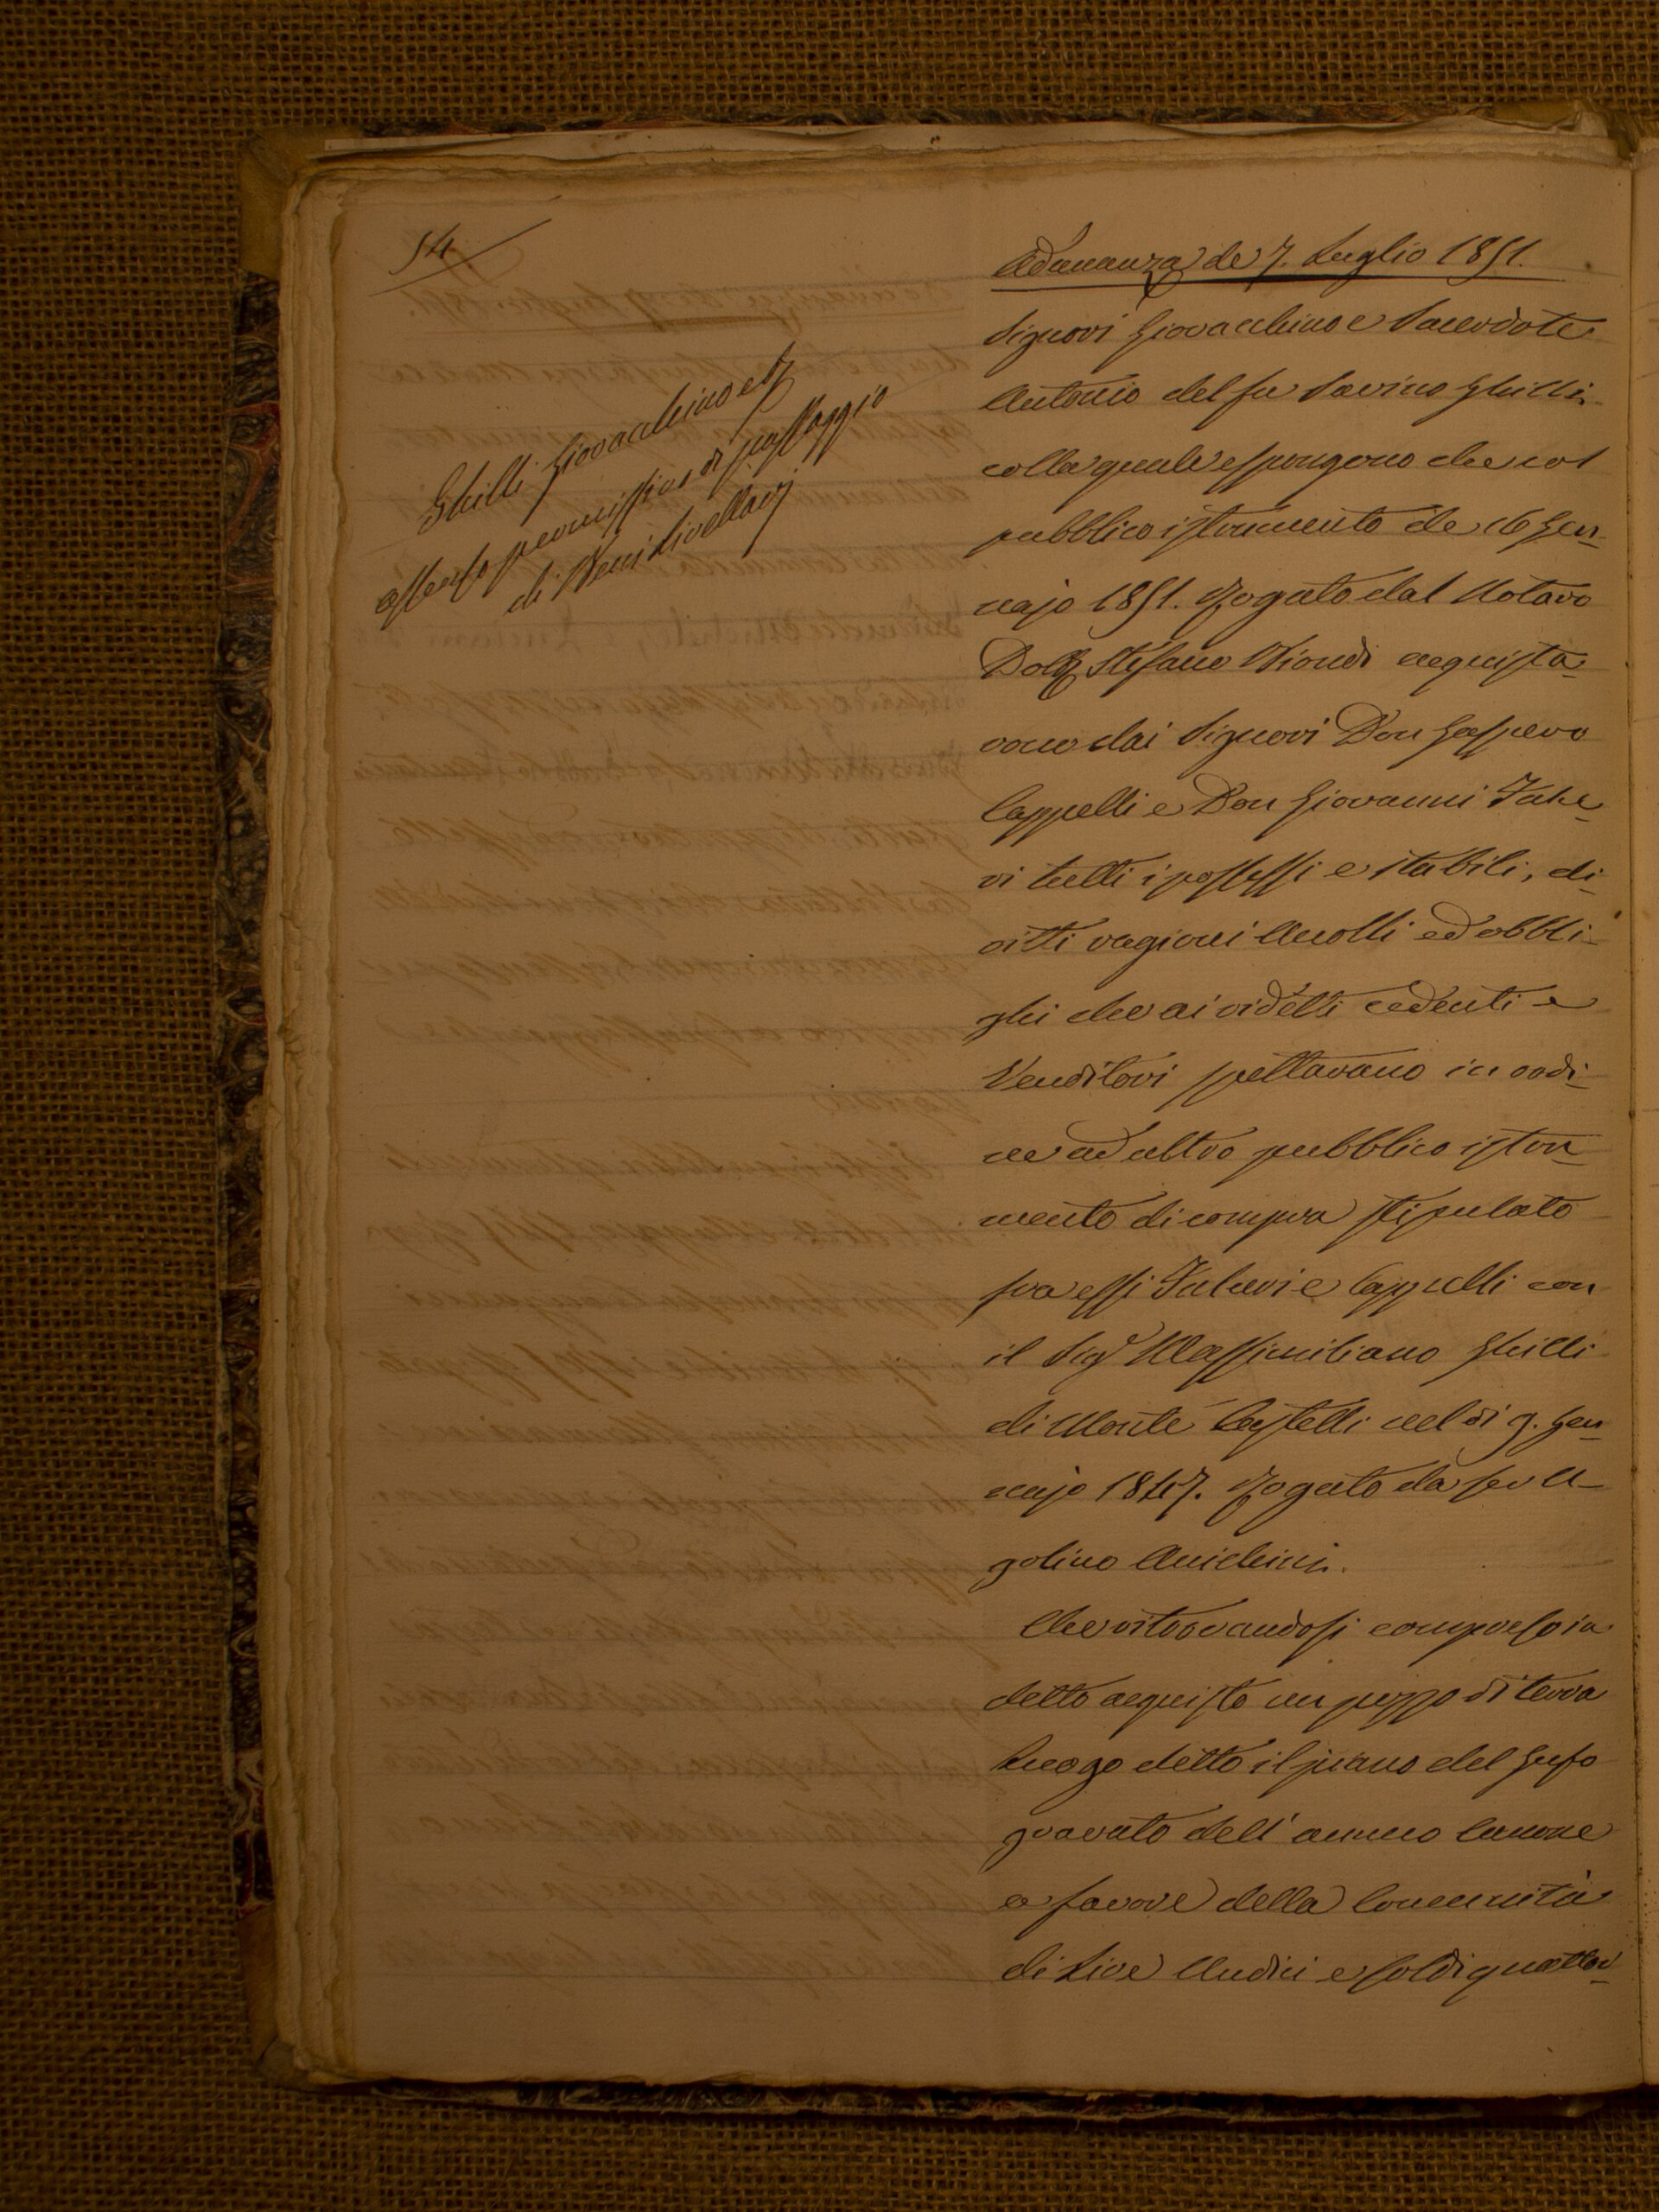 54
Adunanza de 7. Luglio 1851.
Ghilli Giovacchino e
assenso permissivo di passaggio
di Beni Livellarj
Signori Giovacchino e Sacerdote
Antonio del fu Savino Ghilli
colla quale espongono che col
pubblico istrumento de 16 Gen-
najo 1851. Rogato dal Notaro
Dott Stefano Biondi acquista-
rono dai Signori Don Gaspero
Cappelli e Don Giovanni Fule-
ri tutti i possessi e stabili, di-
ritti ragioni Annolli ed obbli-
ghi che ai ridetti cedenti e
Venditori spettavano in ordi-
ne ad altro pubblico istru-
mento di compra stipulato
fra essi Fuleri e Cappelli con
il Sigr Massimiliano Ghilli
di Monte Castelli nel di 9. Gen-
najo 1847. Rogato da ser U-
golino Anichini.
Che ritrovandosi compreso in
detto acquisto un pezzo di terra
Luogo detto il piano del Gufo
gravato dell' annuo Canone
a favore della Comunità
di Lire Undici e soldi quattor-